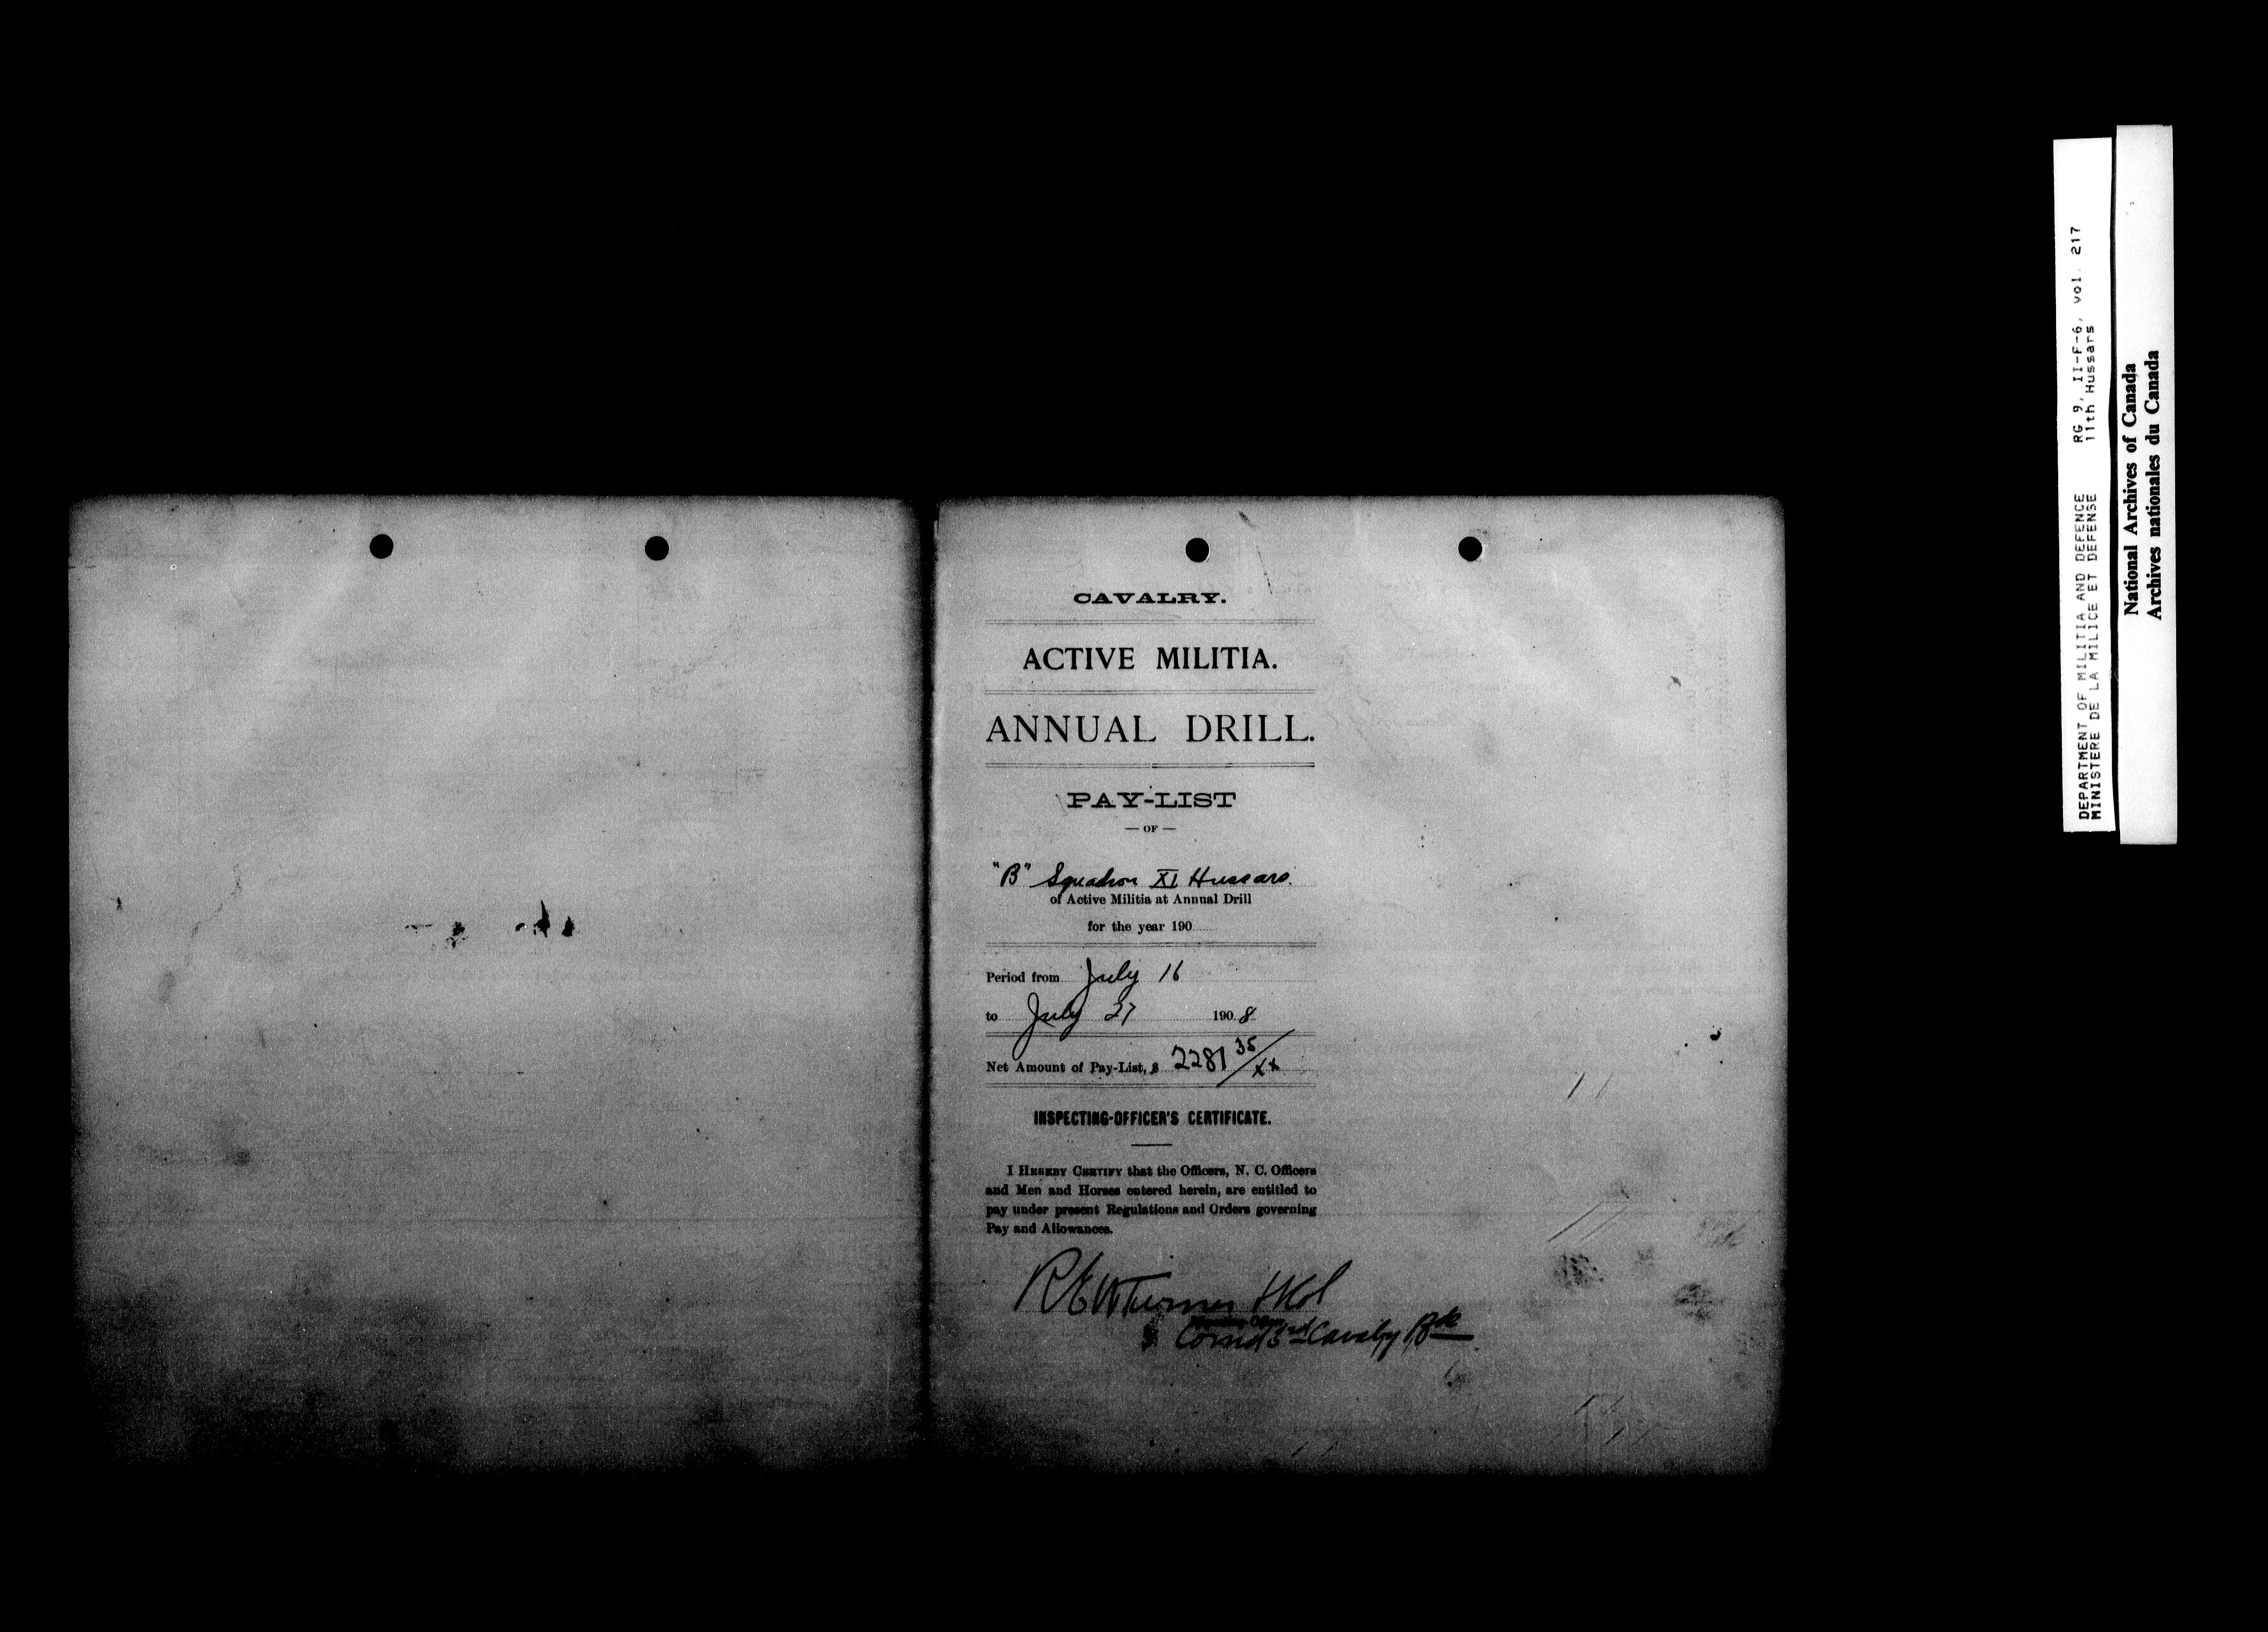 CAVALRY.
ACTIVE MILITIA.
ANNUAL DRILL.
PAY-LIST
— OF —
"B" Squadron XI Hussars.
of Active Militia at Annual Drill
for the year 190
Period from July 16
to July 27 1908
Net Amount of Pay-List, $ 2281 35/xx
INSPECTING-OFFICER'S CERTIFICATE.
I HEREBY CERTIFY that the Officers, N. C. Officers
and Men and Horses entered herein, are entitled to
pay under present Regulations and Orders governing
Pay and Allowances.
REWTurner Col
Comd 3rd Cavalry Bde
DEPARTMENT OF MILITIA AND DEFENCE RG 9, II-F-6, vol. 217
MINISTERE DE LA MILICE ET DEFENSE 11th Hussars
National Archives of Canada
Archives nationales du Canada